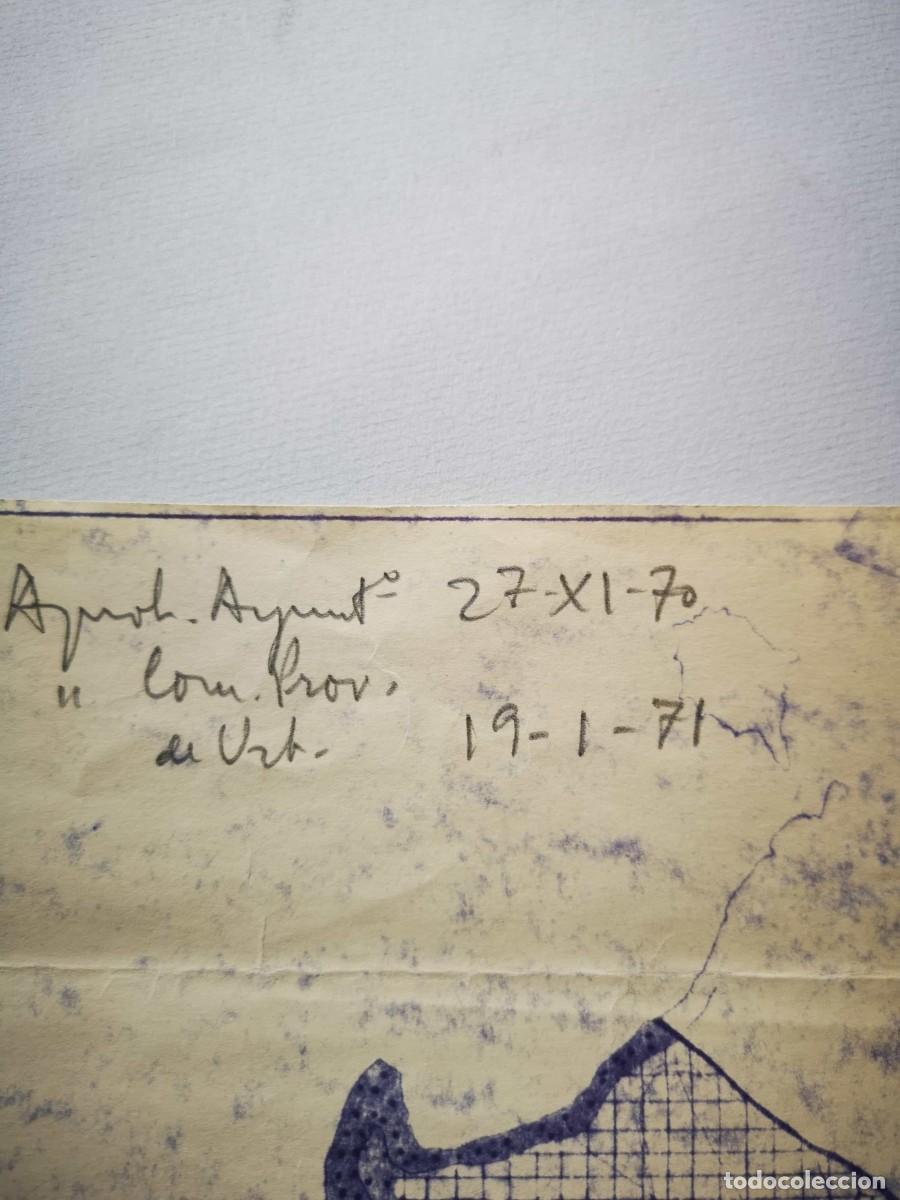 Aprob. Ayunt.º 27-XI-70
" Com. Prov.
de Urb. 19-1-71
todocoleccion